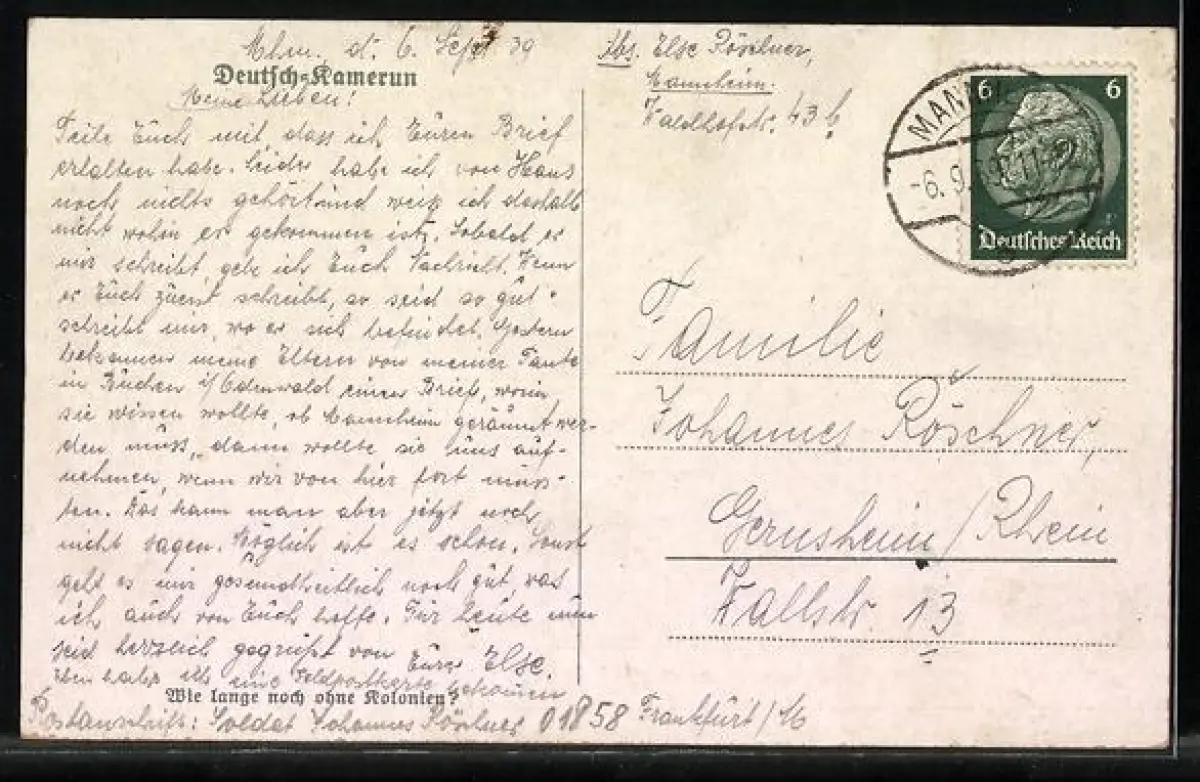 Mhm. d. 6. Sept 39
Deutsch-Kamerun
Meine Lieben!
Teile Euch mit, dass ich Euren Brief
erhalten habe. Leider habe ich von Hans
noch nichts gehört und weiß ich deshalb
nicht wohin er gekommen ist. Sobald er
mir schreibt, gebe ich Euch Nachricht. Wenn
er Euch zuerst schreibt, so seid so gut
schreibt mir, wo er sich befindet. Gestern
bekommen meine Eltern von meiner Tante
in Buchen i/Odenwald einen Brief, worin
sie wissen wollte, ob Mannheim geräumt wer-
den muss, dann wollte sie uns auf-
nehmen, wenn wir von hier fort müss-
ten. Das kann man aber jetzt noch
nicht sagen. Möglich ist es schon. Sonst
geht es mir gesundheitlich noch gut was
ich auch von Euch hoffe. Für heute nun
seid herzlich gegrüßt von Eurer Else.
Eben habe ich eine Feldpostkarte bekommen
Wie lange noch ohne Kolonien?
Postanschrift: Soldat Johannes Röschner 01858 Frankfurt/M
Abs. Else Röschner,
Mannheim.
Waldhofstr. 43 b
MANNHEIM
-6. 9. 39. 11-12
6 6
Deutsches Reich
Familie
Johannes Röschner,
Gernsheim/Rhein
Wallstr. 13